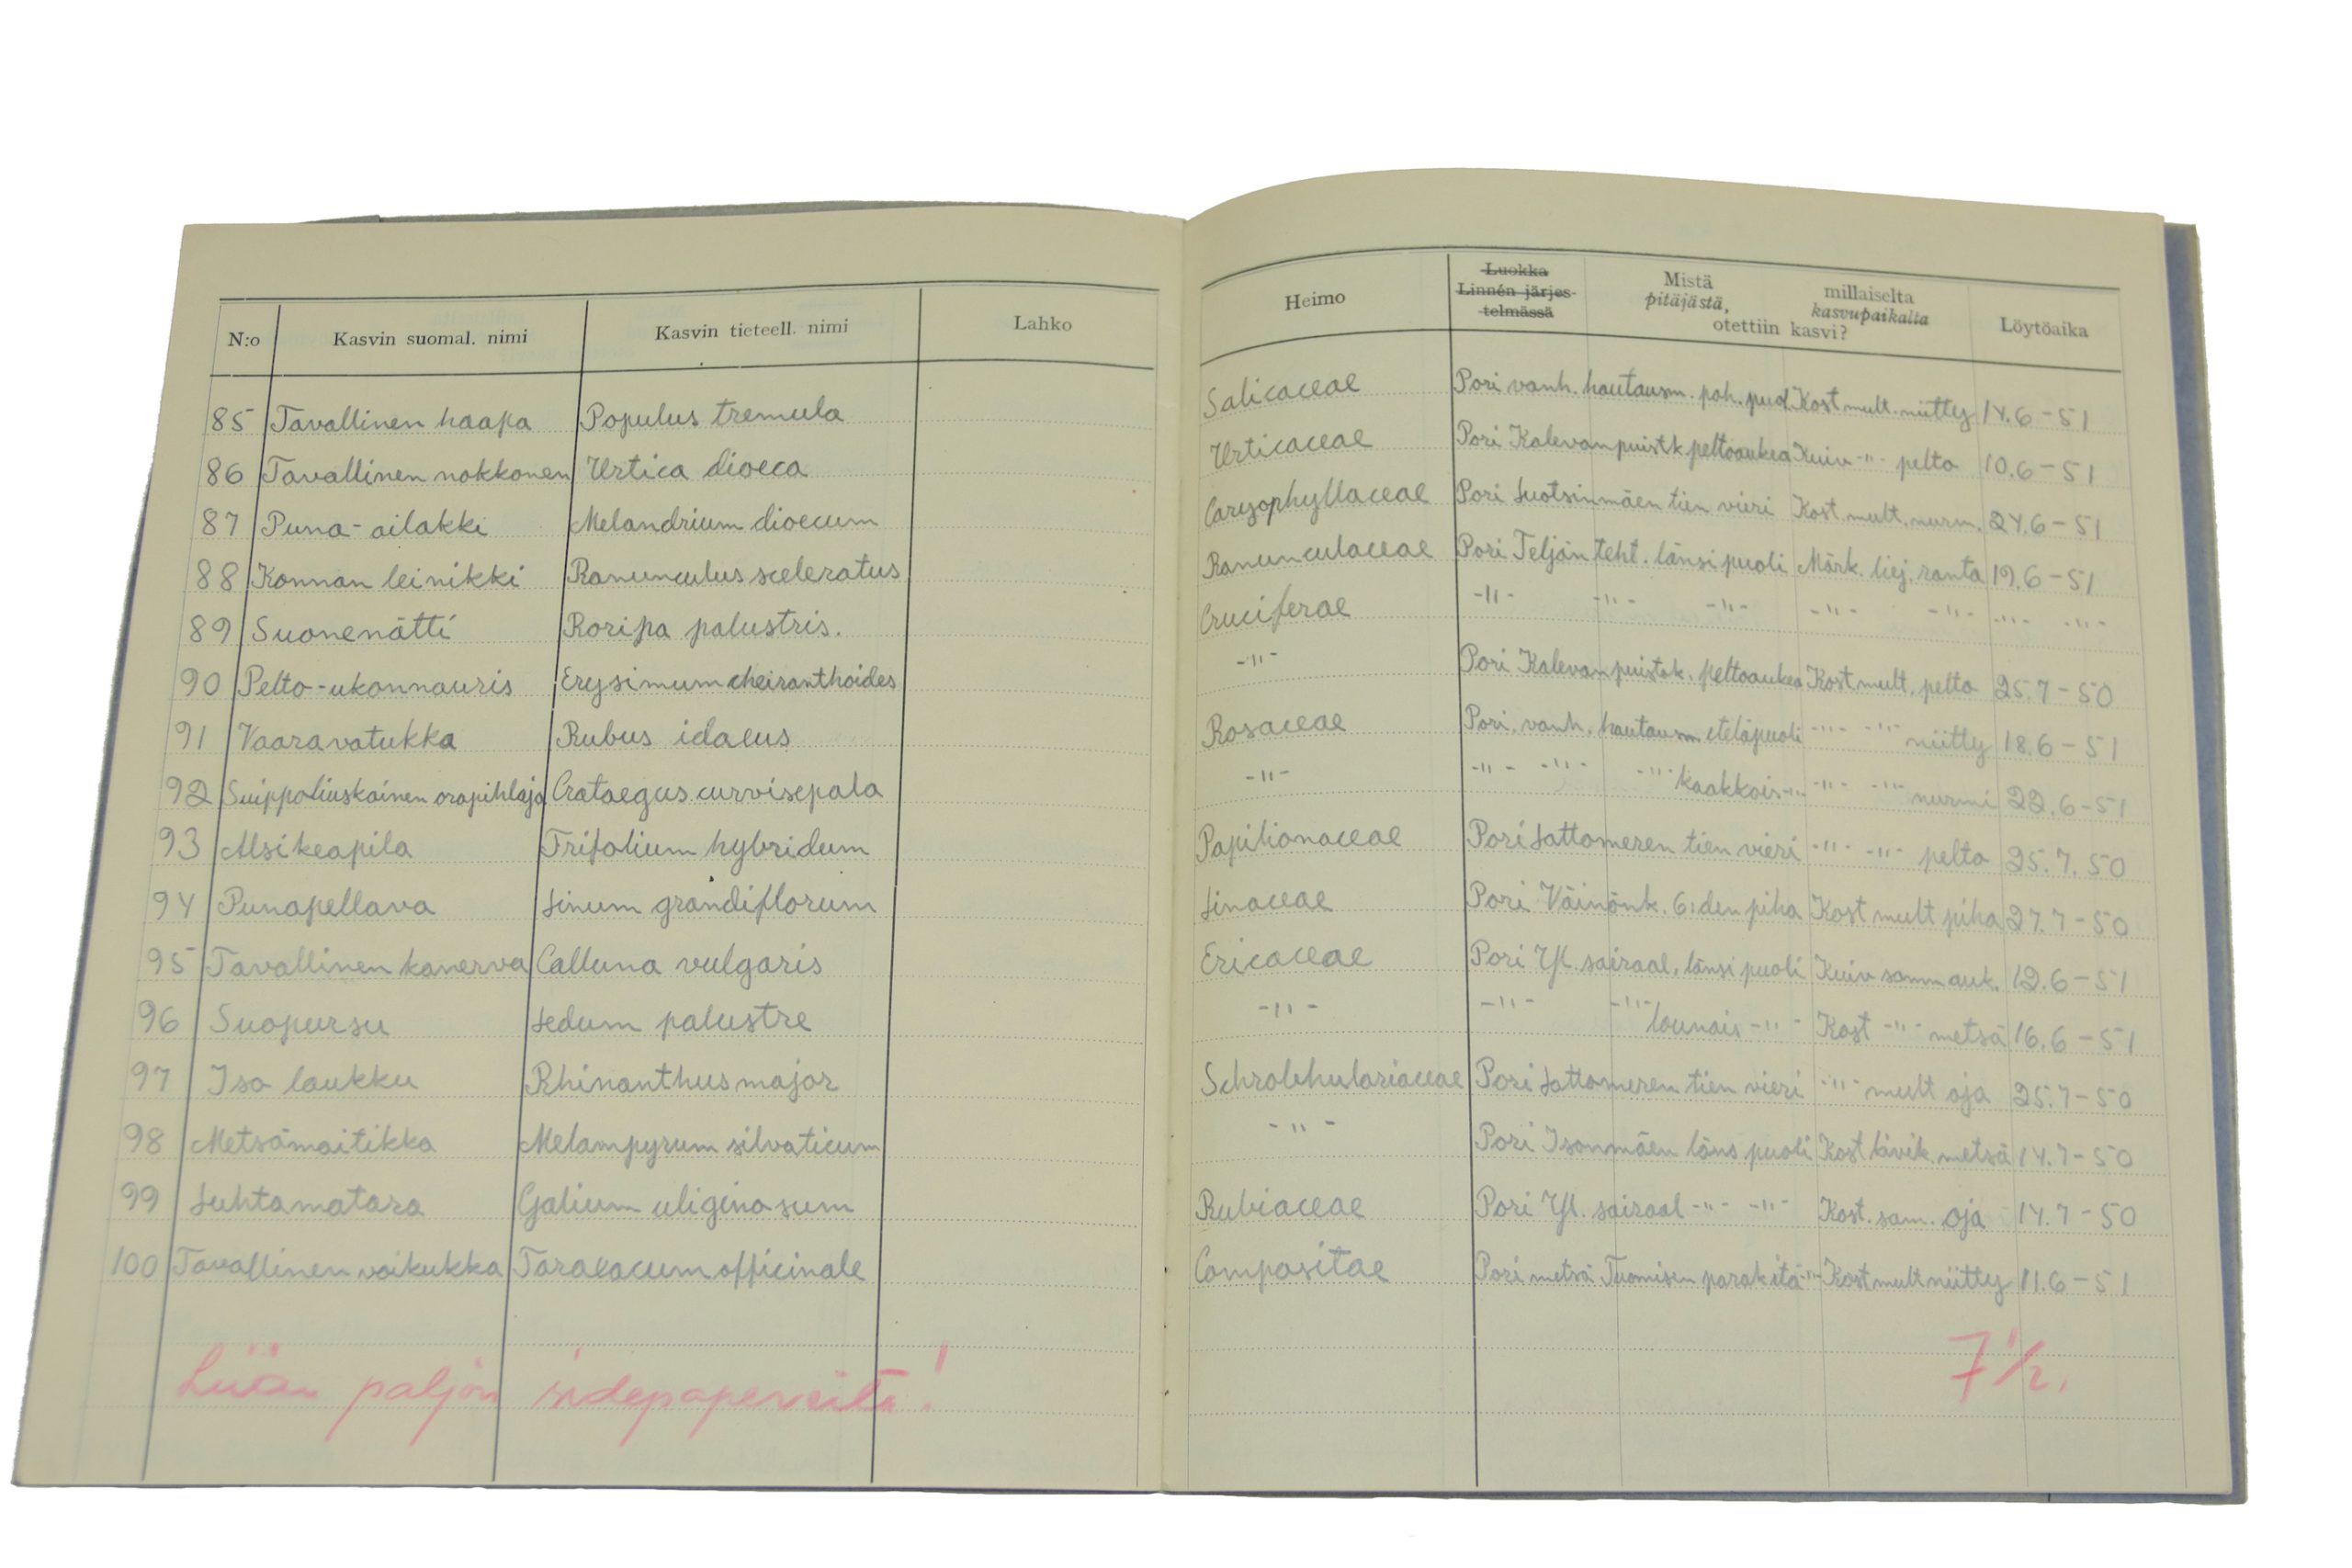 N:o Kasvin suomal. nimi Kasvin tieteell. nimi Lahko Heimo Luokka Linnén järjes-telmässä Mistä pitäjästä, millaiselta kasvupaikalta otettiin kasvi? Löytöaika
85 Tavallinen haapa Populus tremula Salicaceae Pori vanh. hautausm. poh. puol Kost mult. niitty 14.6-51
86 Tavallinen nokkonen Urtica dioeca Urticaceae Pori Kalevanpuistk peltoaukea Kuiv -"- pelto 10.6-51
87 Puna-ailakki Melandrium dioecum Caryophyllaceae Pori Luotsinmäen tien vieri Kost. mult. nurm. 24.6-51
88 Konnan leinikki Ranunculus sceleratus Ranunculaceae Pori Teljän teht. länsipuoli Märk. liej. ranta 19.6-51
89 Suonenätti Roripa palustris. Cruciferae -"- -"- -"- -"- -"- -"- -"-
90 Pelto-ukonnauris Erysimum cheiranthoides -"- Pori Kalevanpuistok. peltoaukea Kost mult. pelto 25.7-50
91 Vaaravatukka Rubus idaeus Rosaceae Pori. vanh. hautausm eteläpuoli -"- -"- niitty 18.6-51
92 Suippoliuskainen orapihlaja Crataegus curvisepala -"- -"- -"- -"- kaakkois-"- -"- -"- nurmi 22.6-51
93 Alsikeapila Trifolium hybridum Papilionaceae Pori Lattomeren tien vieri -"- -"- pelto 25.7.50
94 Punapellava Linum grandiflorum Linaceae Pori Väinönk. 6:den piha Kost mult piha 27.7-50
95 Tavallinen kanerva Calluna vulgaris Ericaceae Pori Yl. sairaal. länsipuoli Kuiv samm auk. 12.6-51
96 Suopursu Ledum palustre -"- -"- -"- lounais -"- Kost -"- metsä 16.6-51
97 Iso laukku Rhinanthus major Schrolehulariaceae Pori Lattomeren tien vieri -"- mult oja 25.7-50
98 Metsämaitikka Melampyrum silvaticum -"- Pori Isonmäen läns puoli Kost kivik. metsä 14.7-50
99 Luhtamatara Galium uliginosum Rubiaceae Pori Yl. sairaal -"- -"- Kost. sam. oja 14.7-50
100 Tavallinen voikukka Taraxacum officinale Compositae Pori metsä Tuomisen parak itä-"- Kost mult niitty 11.6-51
Liian paljon sidepapereita!
7½.